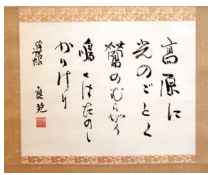 高原に
光のごとく
鶯のむらがり
鳴くはたのし
かりけり